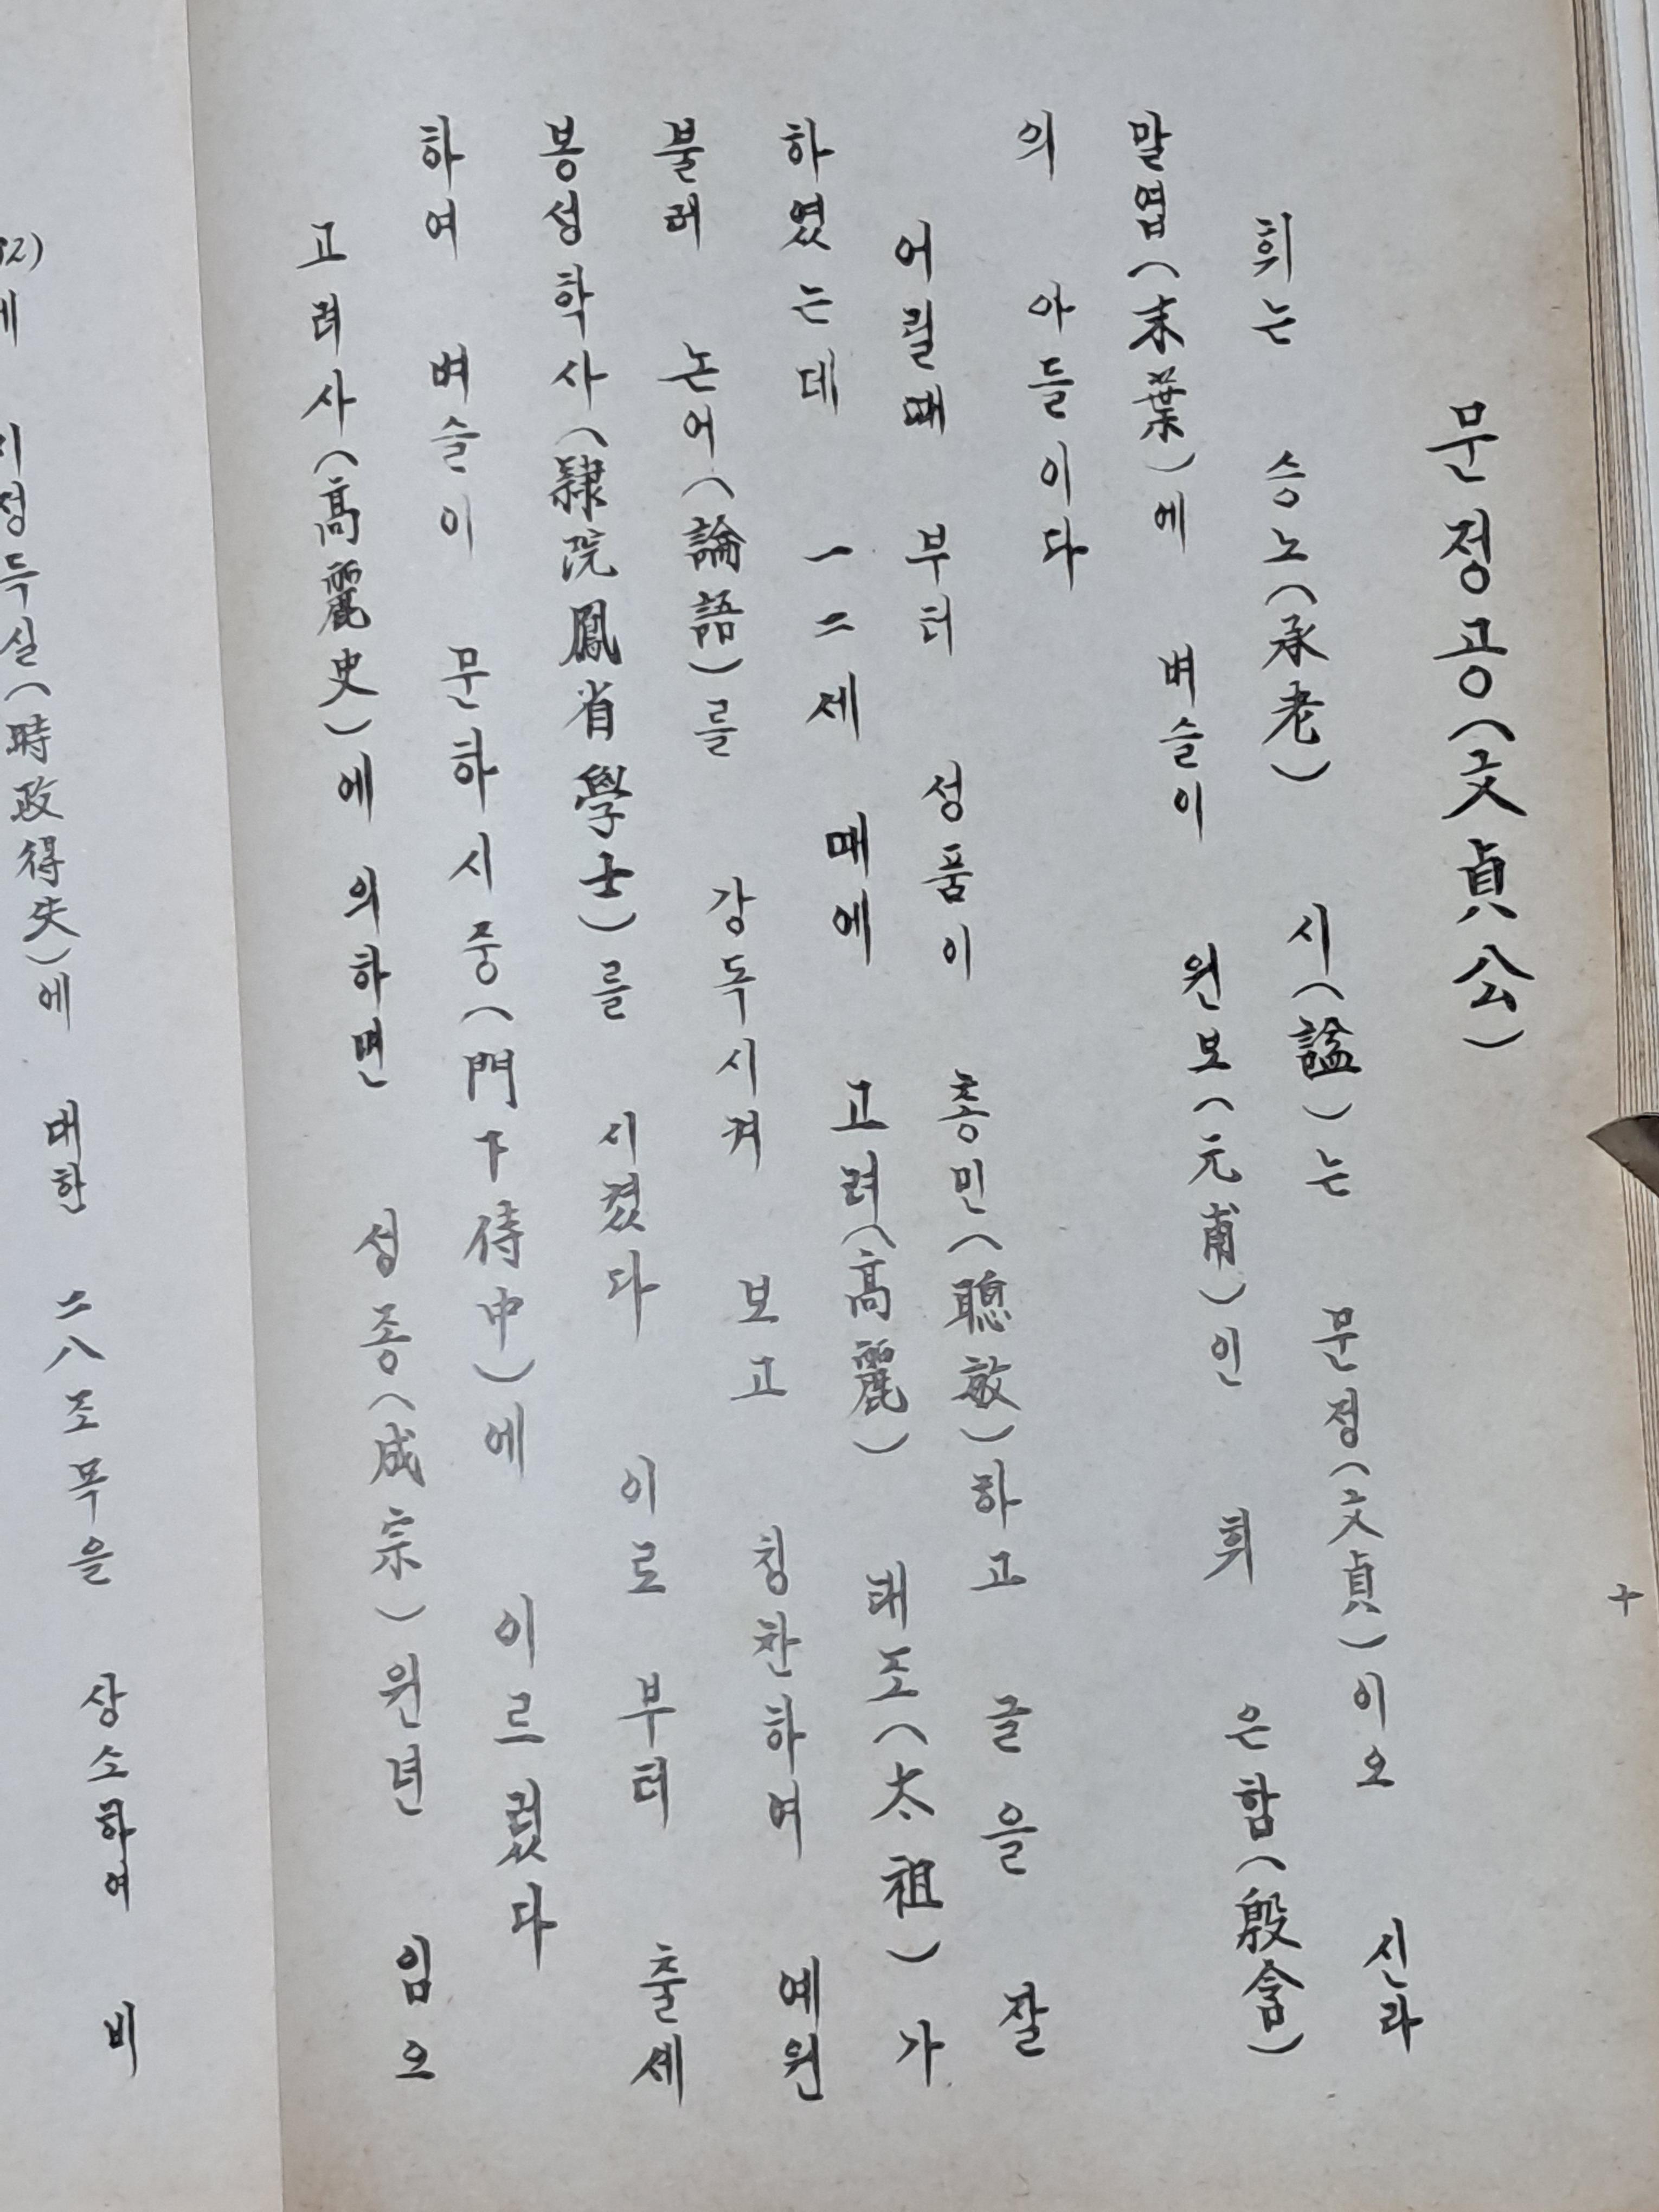 문정공(文貞公)
휘는 승노(承老) 시(諡)는 문정(文貞)이오 신라
말엽(末葉)에 벼슬이 원보(元甫)인 휘 은함(殷含)
의 아들이다
어릴때 부터 성품이 총민(聰敏)하고 글을 잘
하였는데 一二세 때에 고려(高麗) 태조(太祖)가
불러 논어(論語)를 강독시켜 보고 칭찬하여 예원
봉성학사(隸院鳳省學士)를 시켰다 이로 부터 출세
하여 벼슬이 문하시중(門下侍中)에 이르렀다
고려사(高麗史)에 의하면 성종(成宗)원년 임오
에 시정득실(時政得失)에 대한 二八조목을 상소하여 비